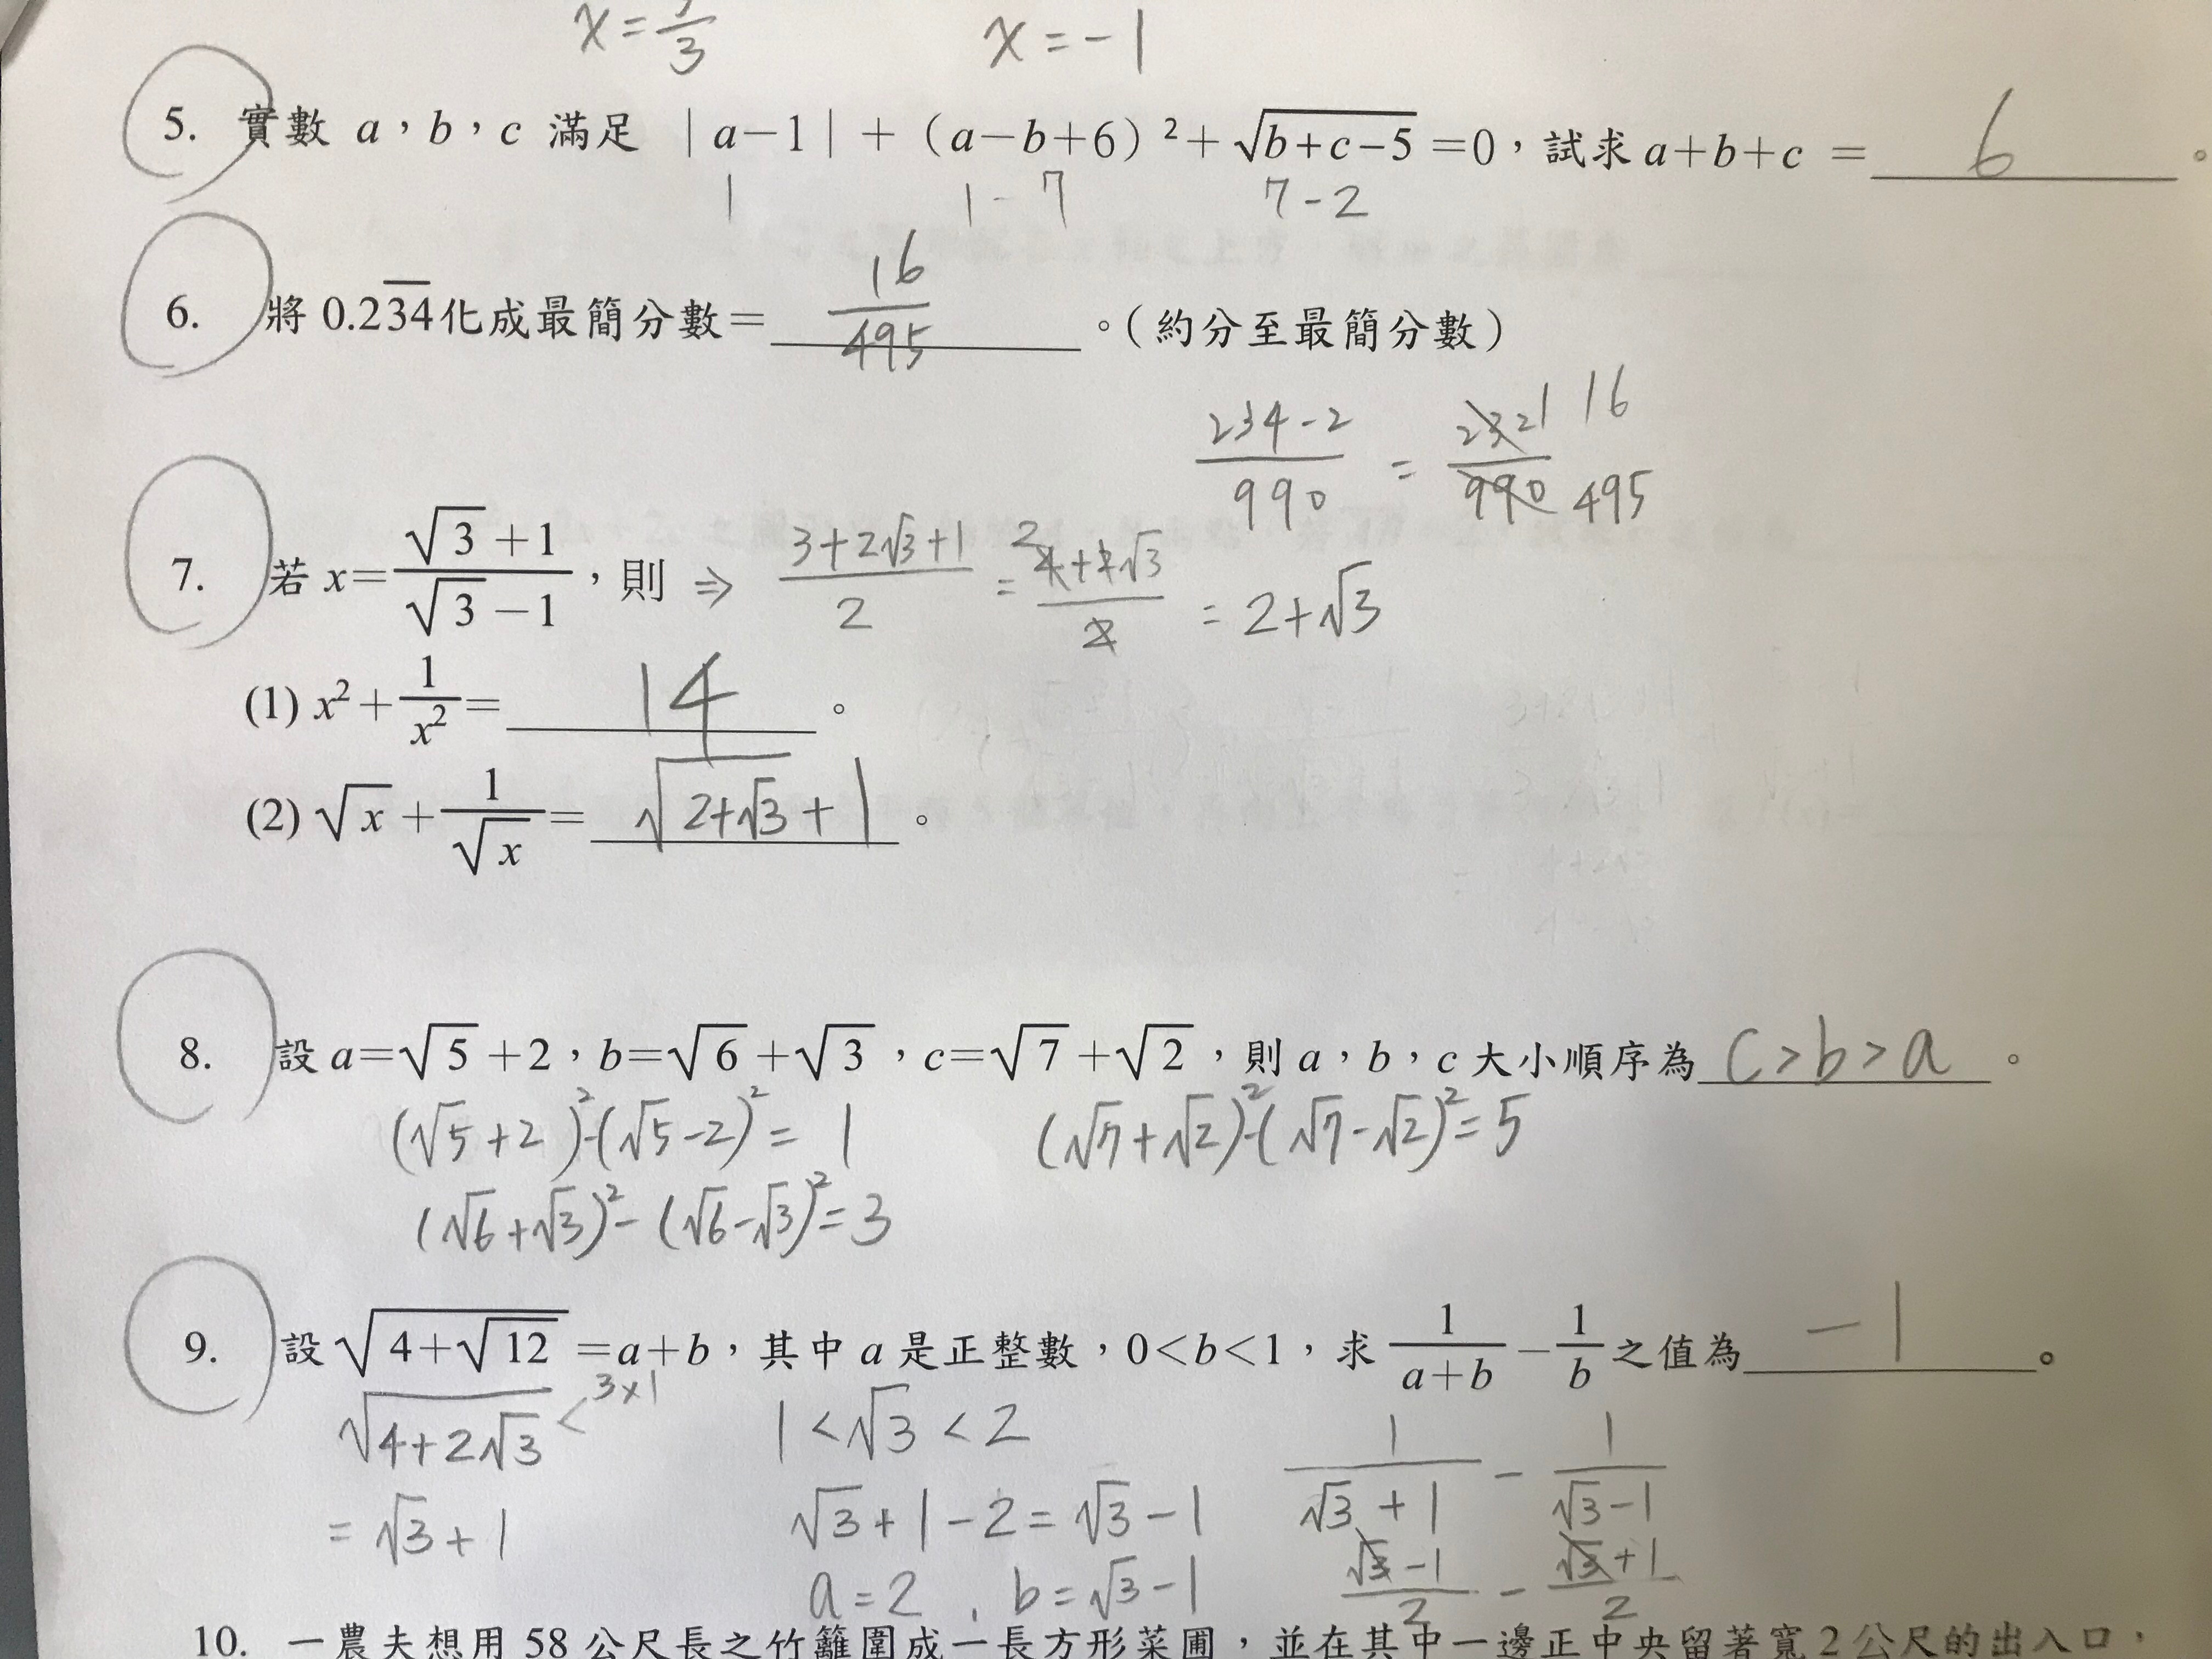 x = 7/3   x = -1
5. 實數 a，b，c 滿足 |a－1|＋（a－b＋6）²＋√(b+c－5)＝0，試求 a＋b＋c ＝ 6 。
1   1 - 7   7 - 2
6. 將 0.2\overline{34} 化成最簡分數＝ 16/495 。（約分至最簡分數）
(234-2)/990 = 232/990 16/495
7. 若 x＝(√3＋1)/(√3－1)，則 ⇒ (3+2√3+1)/2 = (4+2√3)/2 = 2+√3
(1) x²＋1/x²＝ 14 。
(2) √x＋1/√x＝ √(2+√3) + 1 。
8. 設 a＝√5＋2，b＝√6＋√3，c＝√7＋√2，則 a，b，c 大小順序為 c > b > a 。
(√5+2)²-(√5-2)² = 1   (√7+√2)²-(√7-√2)² = 5
(√6+√3)²-(√6-√3)² = 3
9. 設 √(4＋√12)＝a＋b，其中 a 是正整數，0＜b＜1，求 1/(a＋b)－1/b 之值為 -1 。
√(4+2√3) < 3×1   1 < √3 < 2   1/(√3+1) - 1/(√3-1)
= √3 + 1   √3+1-2 = √3-1   (√3-1)/2 - (√3+1)/2
a = 2 , b = √3-1
10. 一農夫想用 58 公尺長之竹籬圍成一長方形菜圃，並在其中一邊正中央留著寬 2 公尺的出入口，